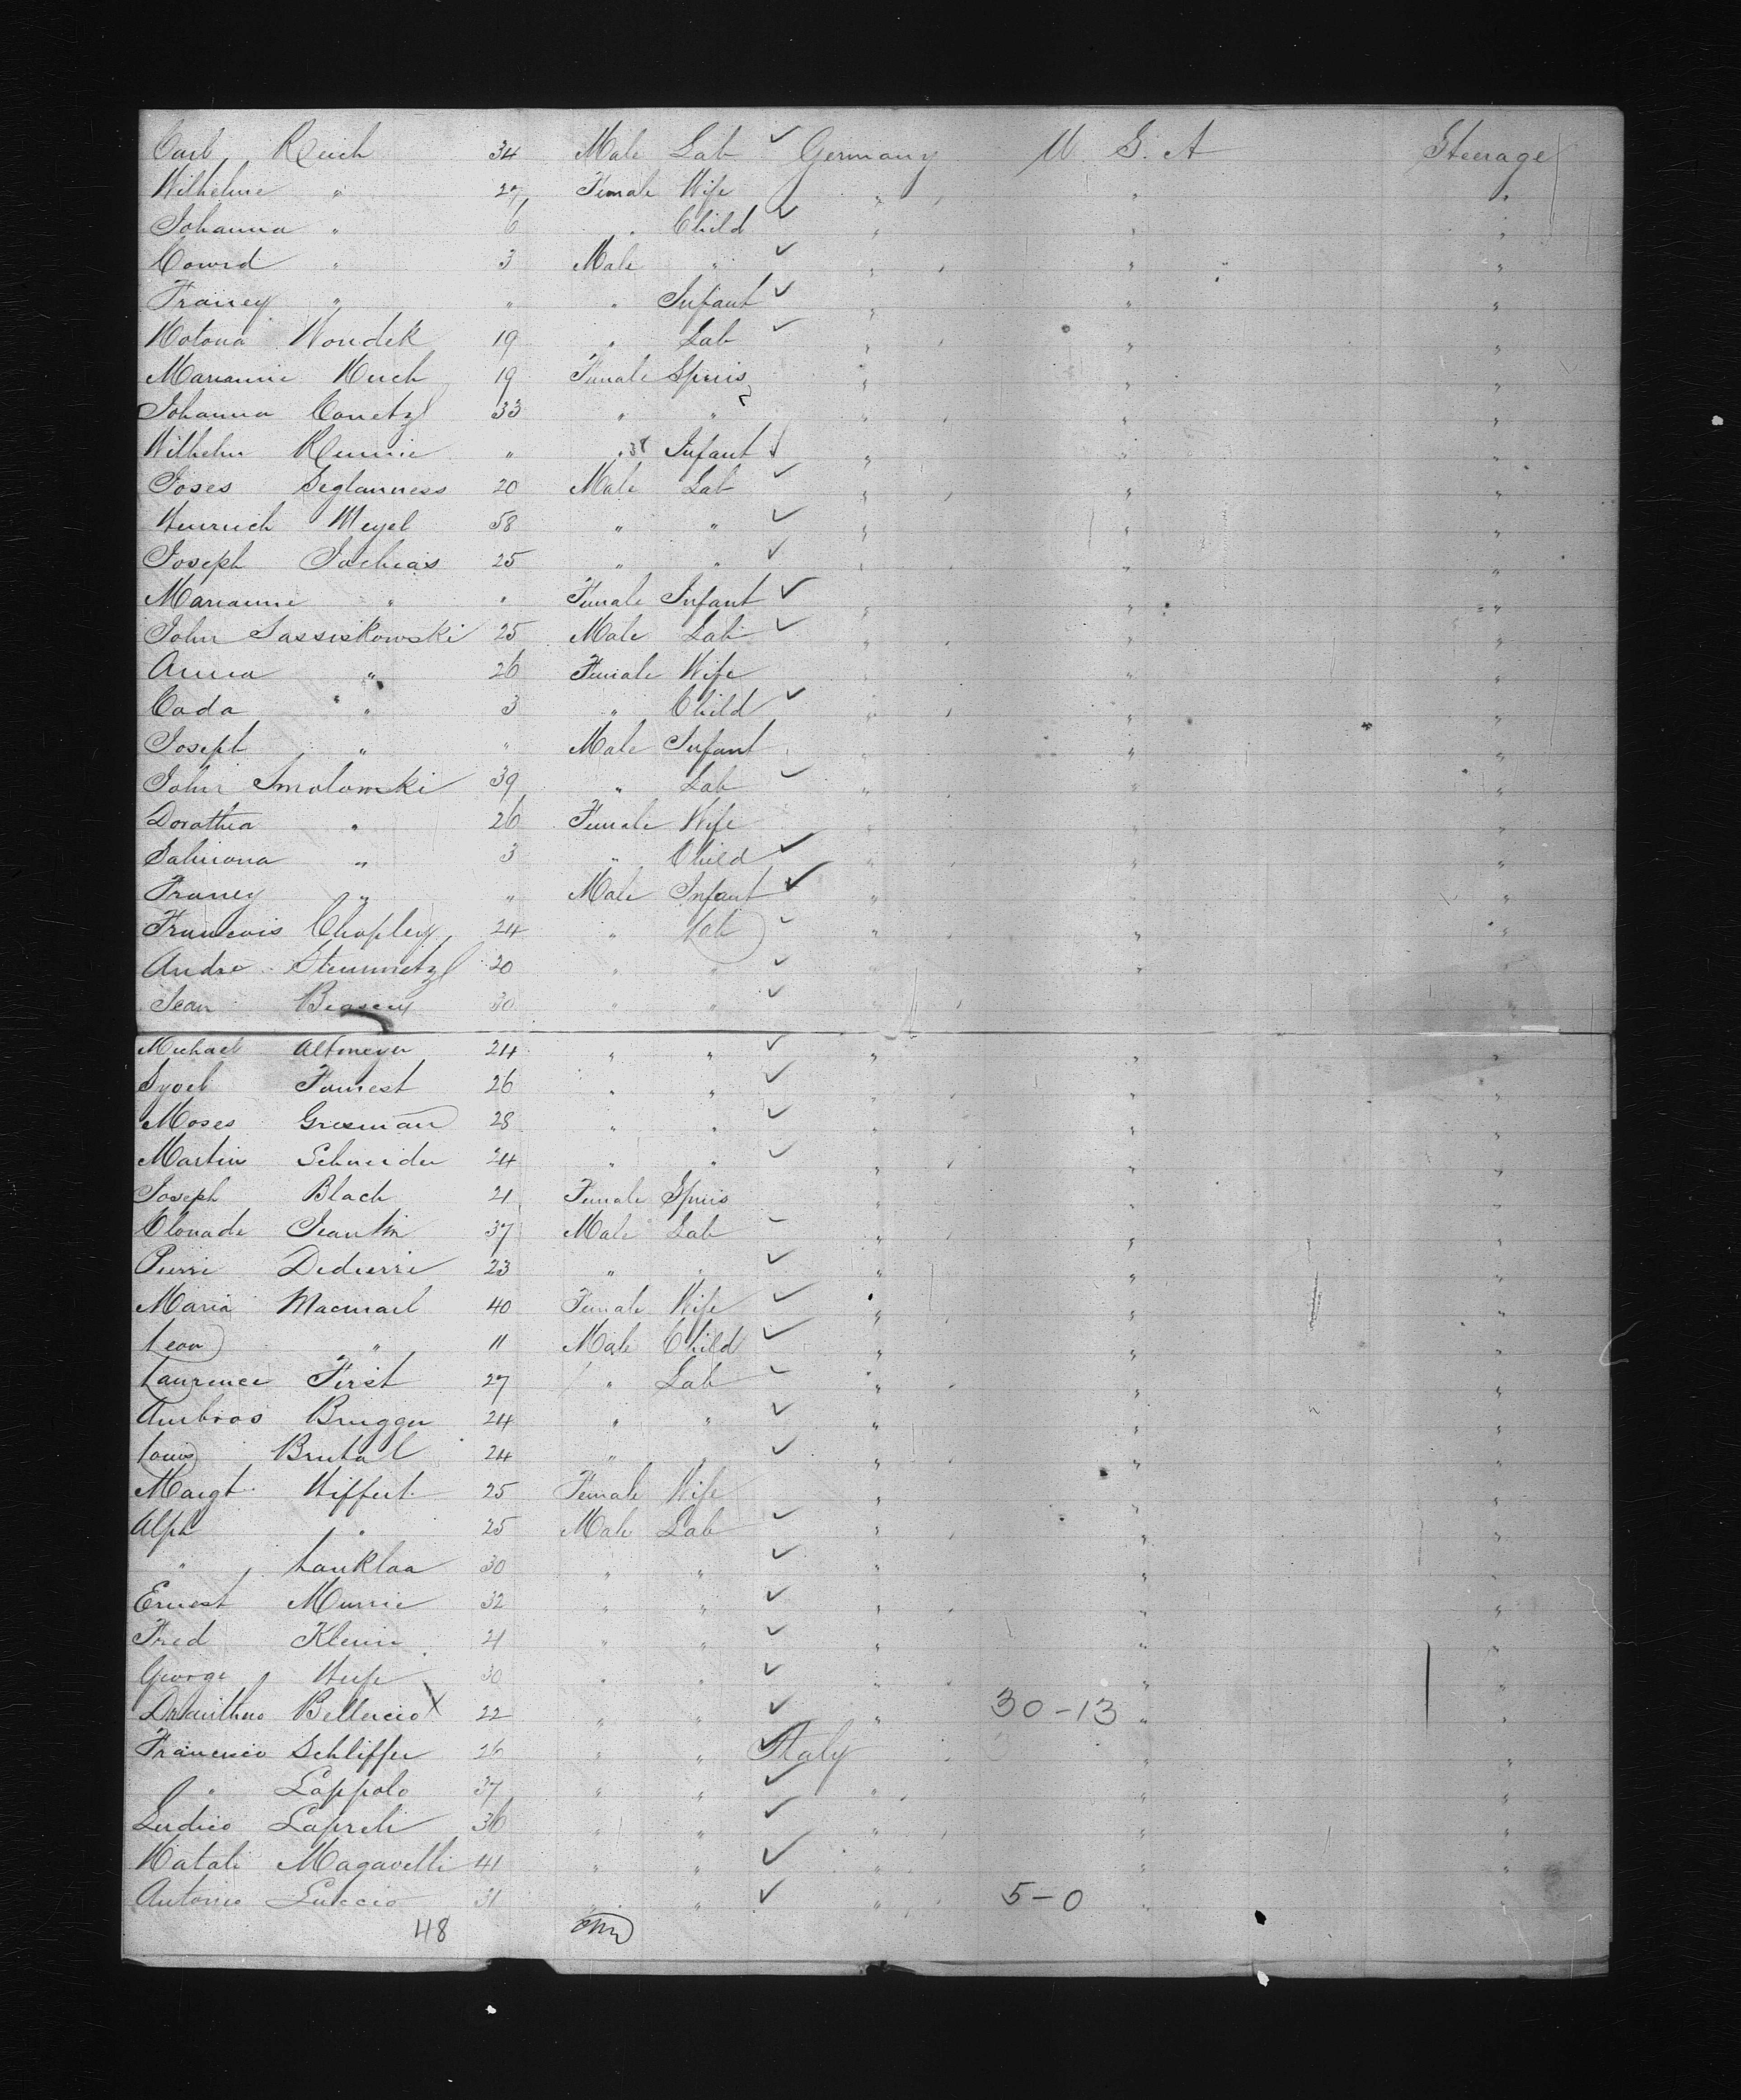 Carl Reich 34 Male Lab ✓ Germany U. S. A Steerage
Wilhelme " 27 Female Wife " " "
Johanna " 6 " Child ✓ " " "
Conrd " 3 Male " ✓ " " "
Franey " " " Infant ✓ " " "
Motona Wondek 19 " Lab ✓ " " "
Marianne Huch 19 Female Spins " " "
Johanna Conetzl 33 " " " " "
Wilhelm Rennie " " 38 Infant ✓ " " "
Joses Seglanness 20 Male Lab ✓ " " "
Heinrich Meyel 58 " " ✓ " " "
Joseph Jochias 25 " " ✓ " " "
Marianne " " Female Infant ✓ " " "
John Sassiskowski 25 Male Lab ✓ " " "
Anna " 26 Female Wife " " "
Cada " 3 " Child ✓ " " "
Joseph " " Male Infant " " "
John Smolomski 39 " Lab ✓ " " "
Dorothea " 26 Female Wife " " "
Salmona " 3 " Child ✓ " " "
Franey " " Male Infant ✓ " " "
Francois Chapley 24 " Lab ✓ " " "
Andre Steinmetzl 20 " " ✓ " " "
Jean 30 " " ✓ " " "
Michael Altmeyer 24 " " ✓ " " "
Forrest 26 " " ✓ " " "
Moses Gresman 28 " " ✓ " " "
Martin Schneider 24 " " ✓ " " "
Joseph Blach 21 Female Spins " " "
Clonade Jeantin 37 Male Lab ✓ " " "
Pierri Didierri 23 " " ✓ " " "
Maria Macmail 40 Female Wife ✓ " " "
Leon " 11 Male Child ✓ " " "
Laurence First 27 " Lab ✓ " " "
Ambros Brugger 24 " " ✓ " " "
Louis Brutal 24 " " ✓ " " "
Margt Wiffert 25 Female Wife " " "
Alph " 25 Male Lab ✓ " " "
" Lanklaa 30 " " ✓ " " "
Ernest Murrie 32 " " ✓ " " "
Fred Klein 21 " " ✓ " " "
George 30 " " ✓ " " "
Bellercio X 22 " " ✓ " 30-13 " "
Francisco Schliffer 26 " " ✓ Italy " "
" Lappolo 37 " " ✓ " " "
Ludico Lapreli 36 " " ✓ " " "
Natali Magavelli 41 " " ✓ " " "
Antonio Luccio 31 " " ✓ " 5-0 " "
48